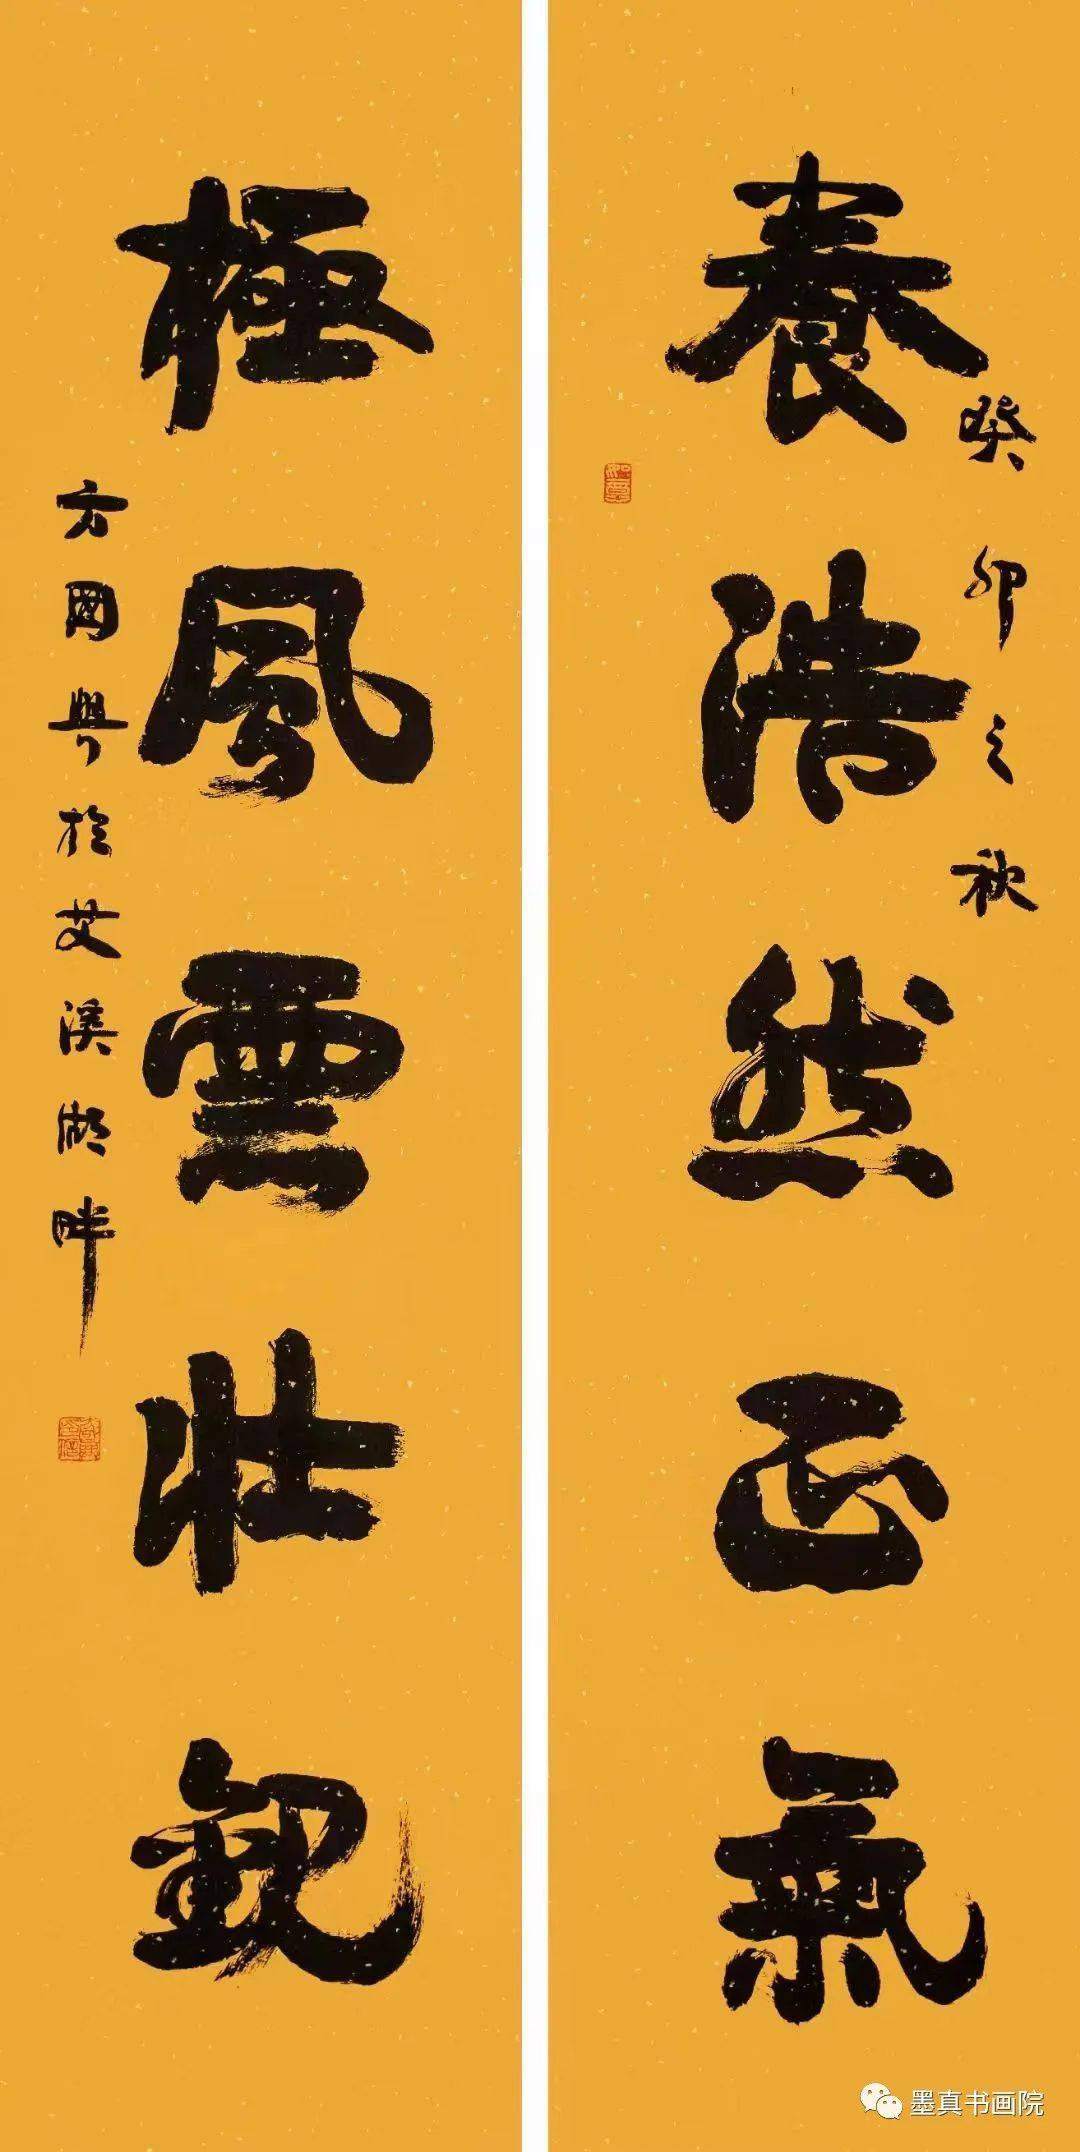 養浩然正氣
癸卯之秋
極風雲壯觀
方國興於艾溪湖畔
墨真书画院